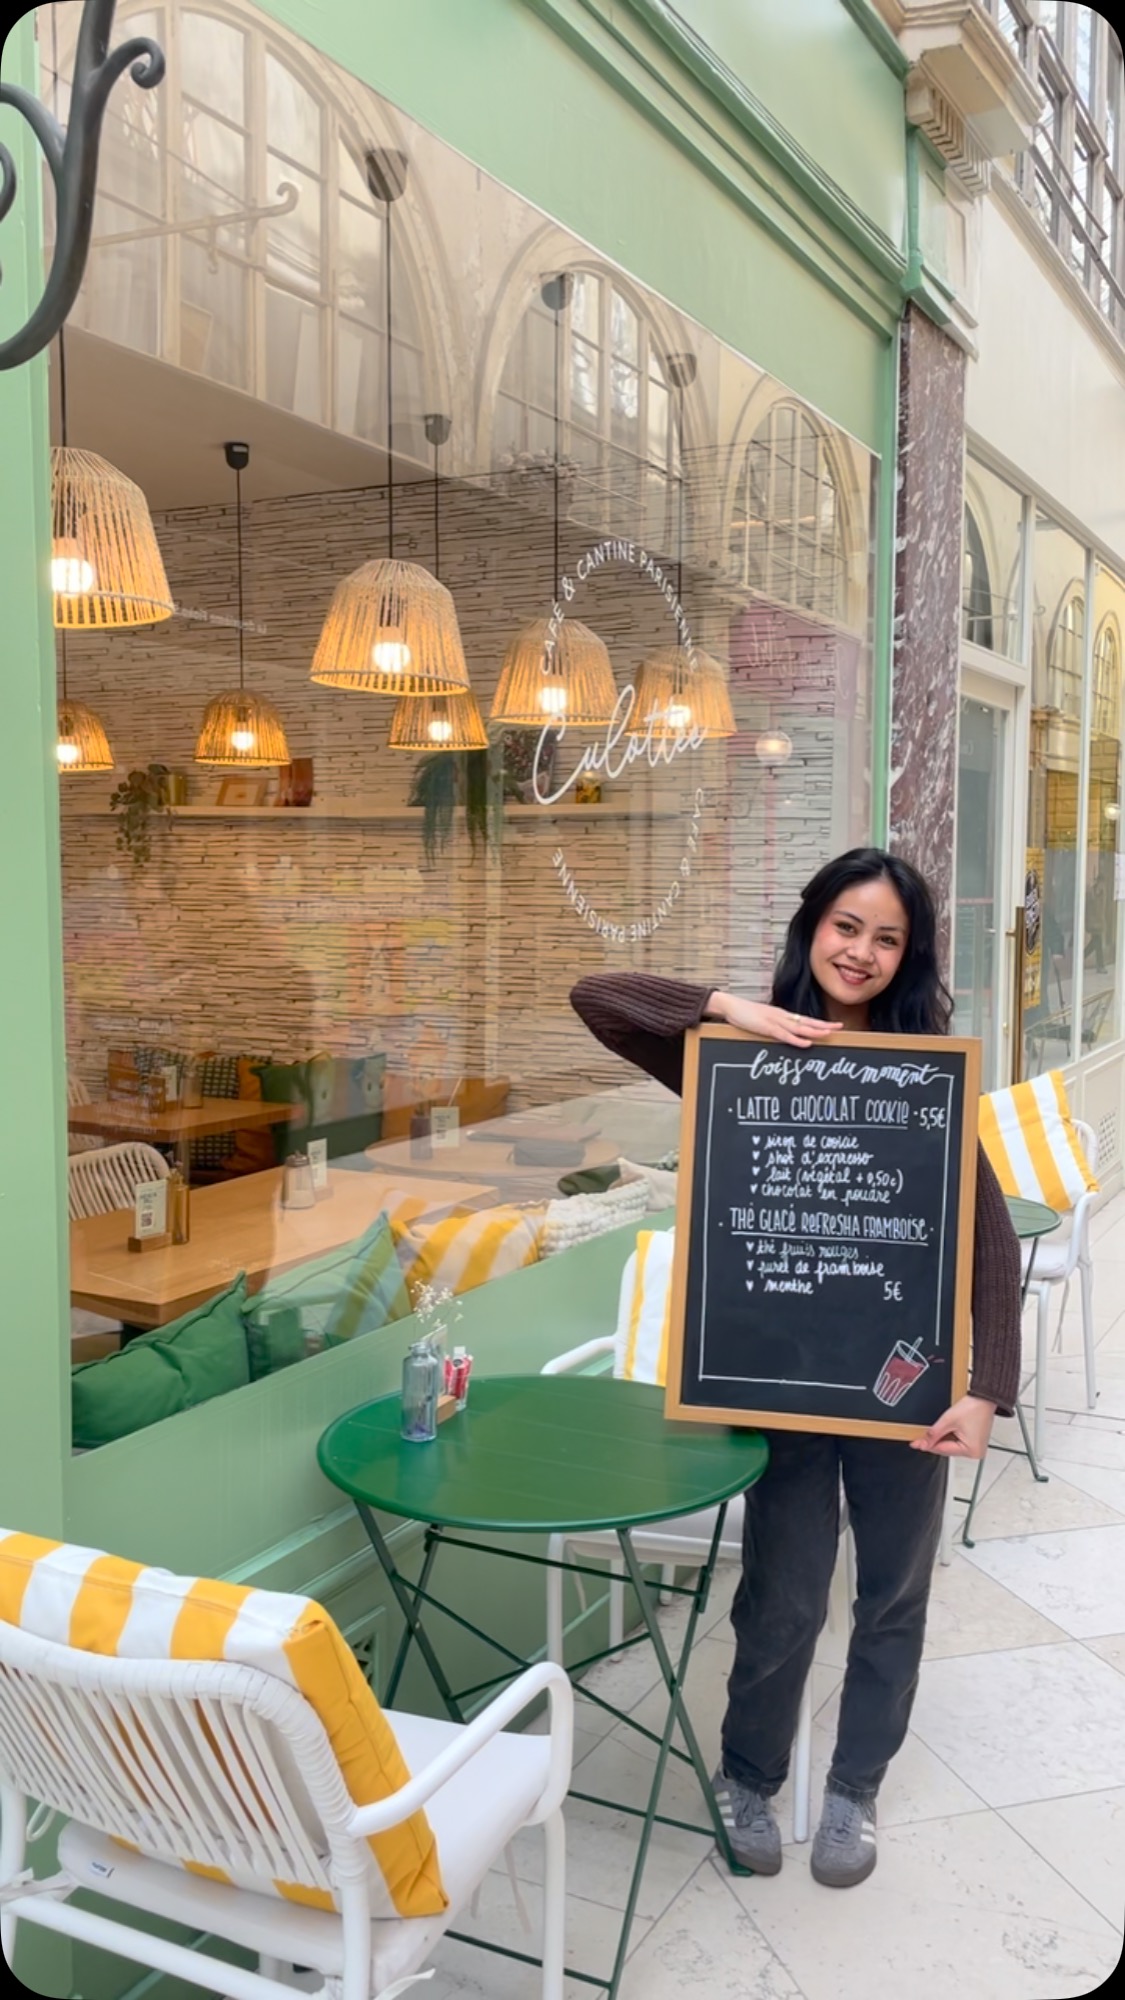 CAFE & CANTINE PARISIENNE
Culottes
CAFE & CANTINE PARISIENNE
boisson du moment
• LATTE CHOCOLAT COOKIE • 5,5€
♥ sirop de cookie
♥ shot d'expresso
♥ lait (végétal + 0,50c)
♥ chocolat en poudre
• THÉ GLACÉ REFRESHA FRAMBOISE •
♥ thé fruits rouges
♥ puret de framboise
♥ menthe 5€